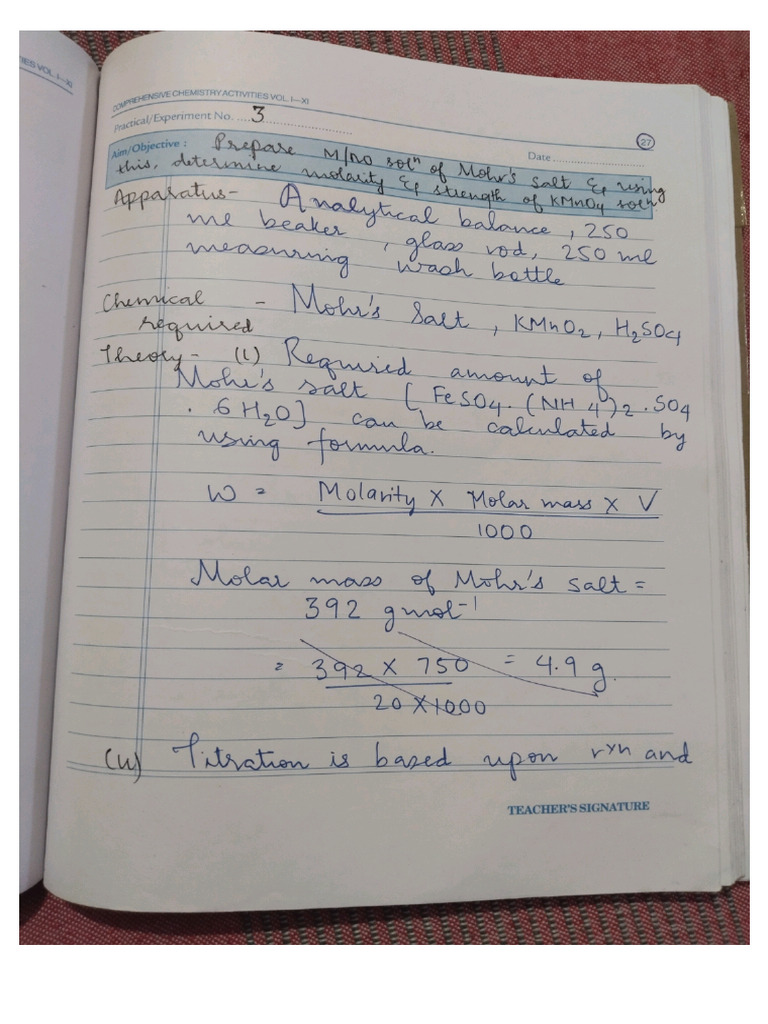 IES VOL. I—XI
COMPREHENSIVE CHEMISTRY ACTIVITIES VOL. I—XI
Practical/Experiment No. ....3....
27
Date ....
Aim/Objective : Prepare M/20 solⁿ of Mohr's Salt & using
this, determine molarity & strength of KMnO4 solⁿ
Apparatus- Analytical balance, 250
ml beaker, glass rod, 250 ml
measuring wash bottle
Chemical - Mohr's Salt, KMnO2, H2SO4
required
Theory- (i) Required amount of
Mohr's salt [FeSO4.(NH4)2.SO4
.6H2O] can be calculated by
using formula.
W = Molarity X Molar mass X V
1000
Molar mass of Mohr's salt =
392 gmol⁻¹
= 392 X 750 = 4.9 g.
20 X 1000
(ii) Titration is based upon rxn and
TEACHER'S SIGNATURE